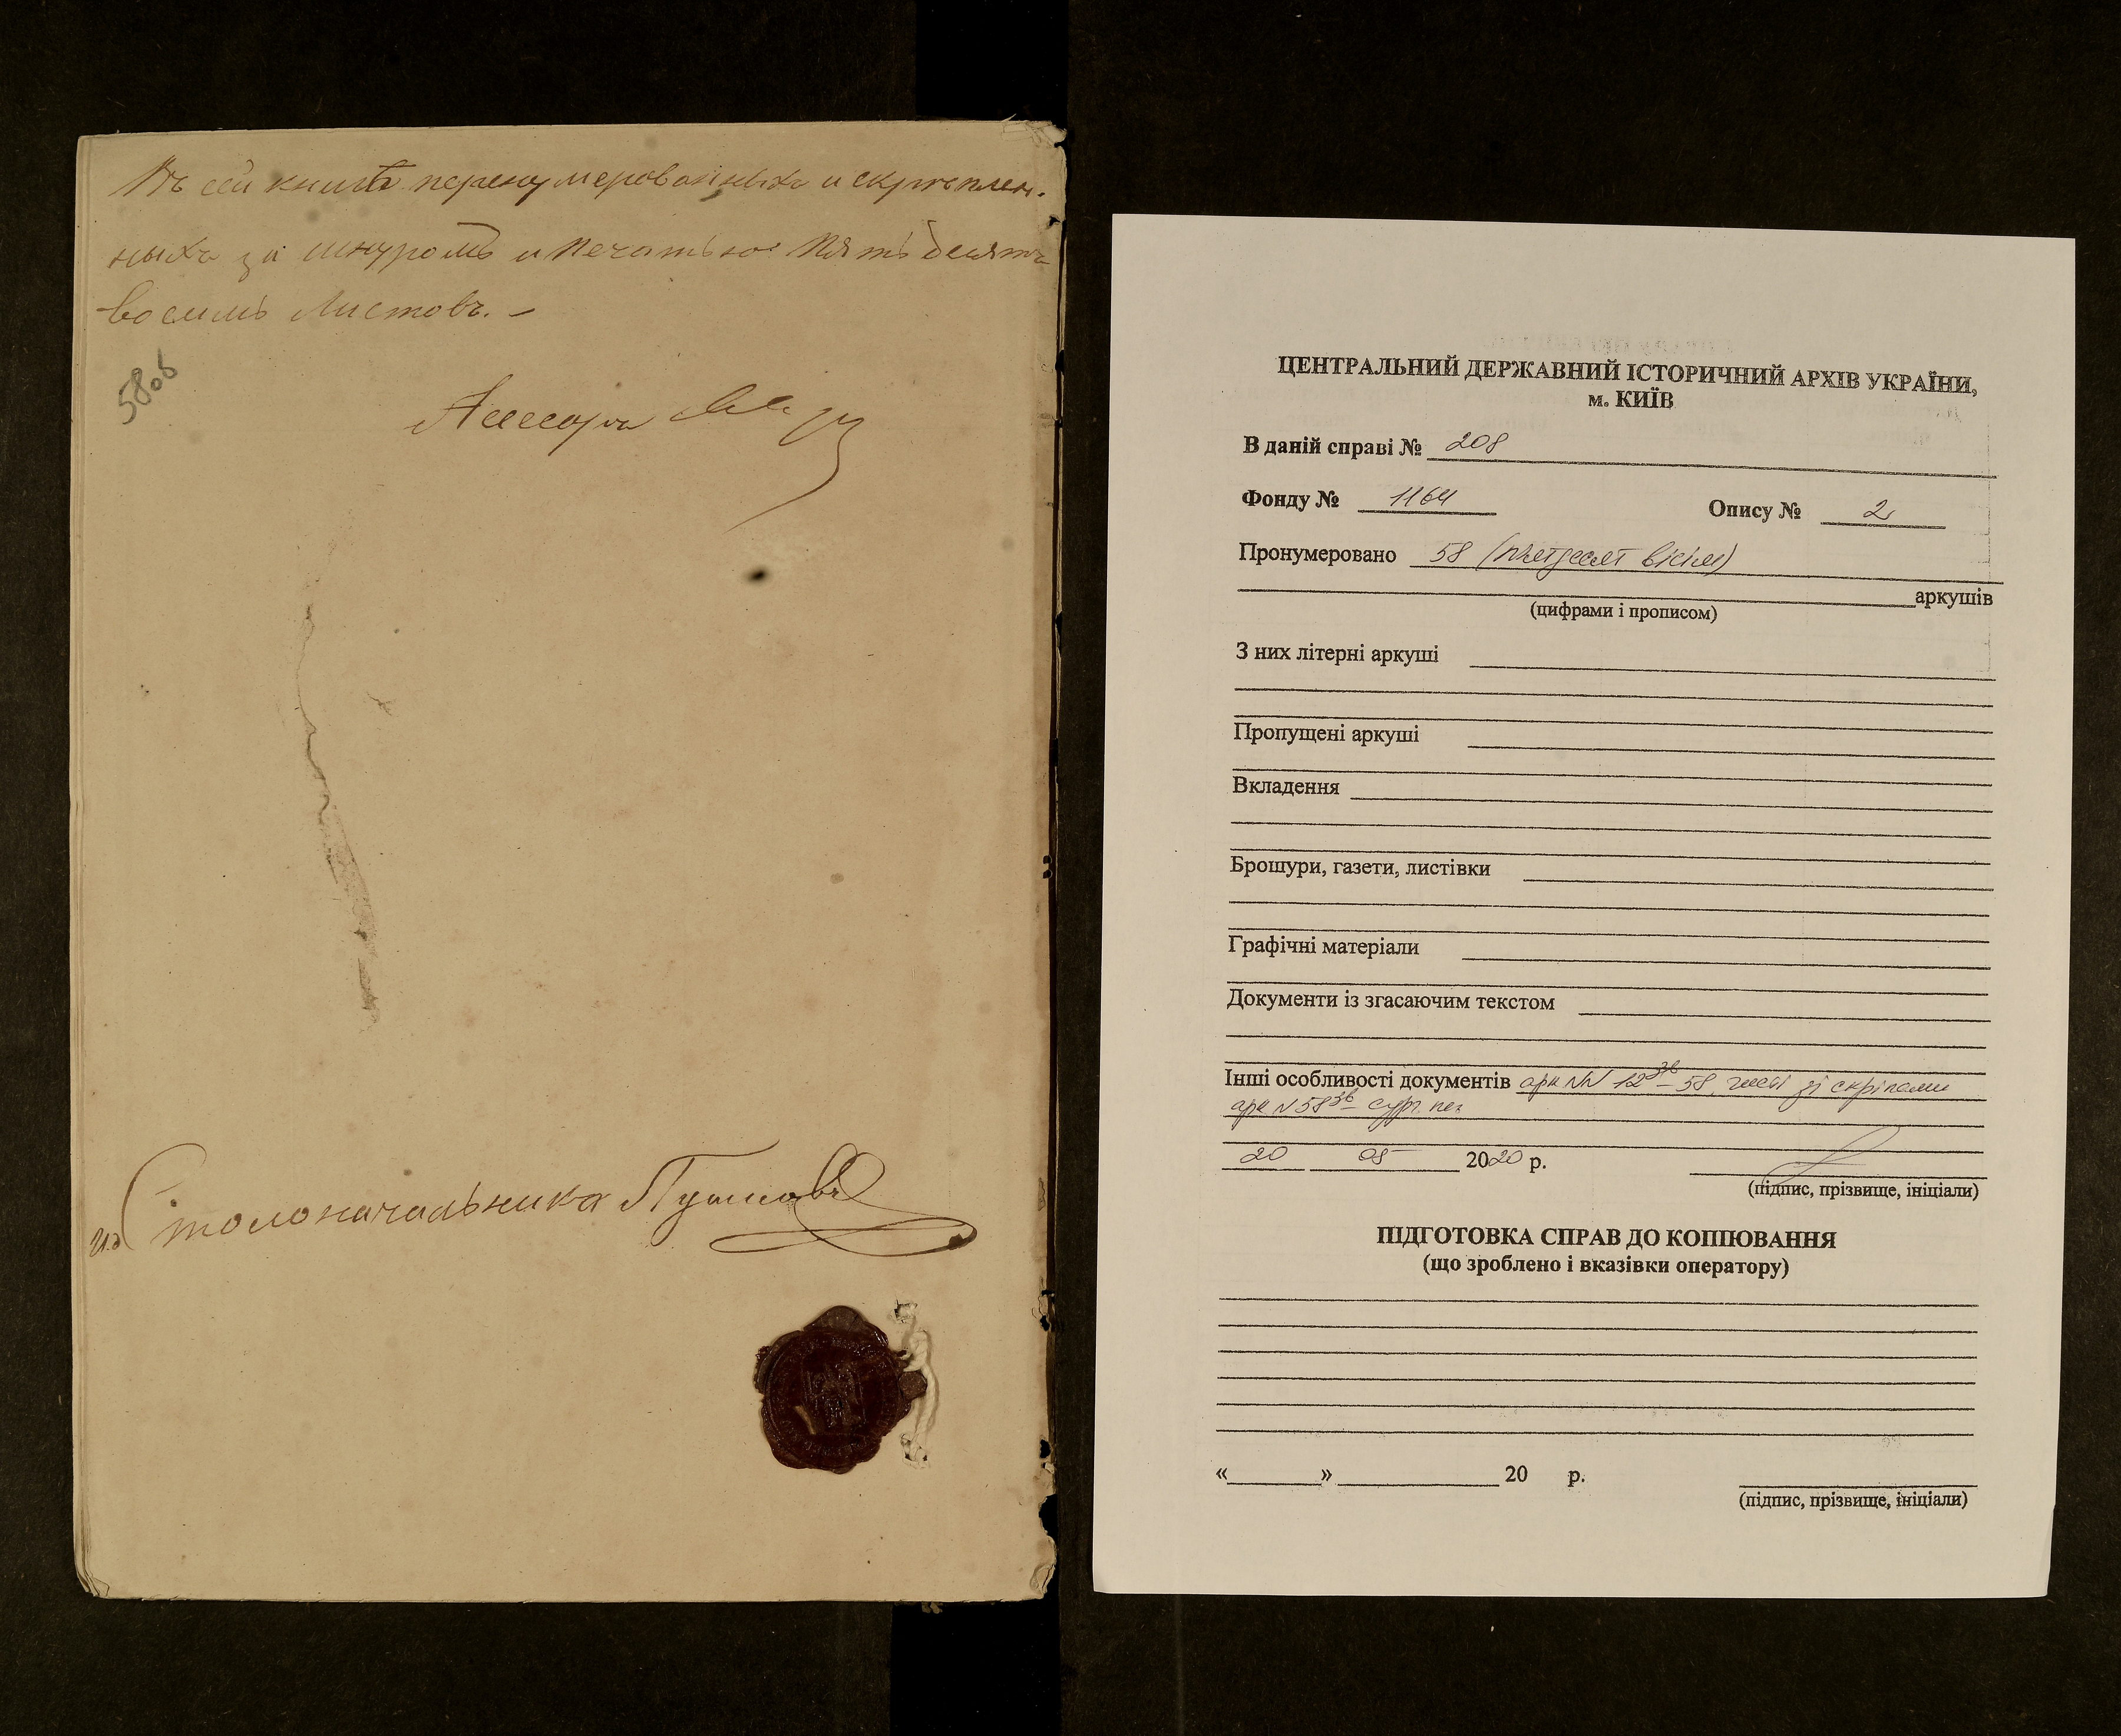 Въ сей книгѣ перенумерованныхъ и скрѣплен-
ныхъ за шнуромъ и печатью пятьдесятъ
восемь листовъ. –
58об
Ассесоръ
ид Столоначальника
ЦЕНТРАЛЬНИЙ ДЕРЖАВНИЙ ІСТОРИЧНИЙ АРХІВ УКРАЇНИ,
м. КИЇВ
В даній справі № 208
Фонду № 1164 Опису № 2
Пронумеровано 58 (п'ятдесят вісім)
аркушів
(цифрами і прописом)
З них літерні аркуші
Пропущені аркуші
Вкладення
Брошури, газети, листівки
Графічні матеріали
Документи із згасаючим текстом
Інші особливості документів арк №№ 12зв – 58 чисті зі скріпами
арк № 58зв – сург. печ.
20 05 2020 р.
(підпис, прізвище, ініціали)
ПІДГОТОВКА СПРАВ ДО КОПІЮВАННЯ
(що зроблено і вказівки оператору)
« » 20 р.
(підпис, прізвище, ініціали)